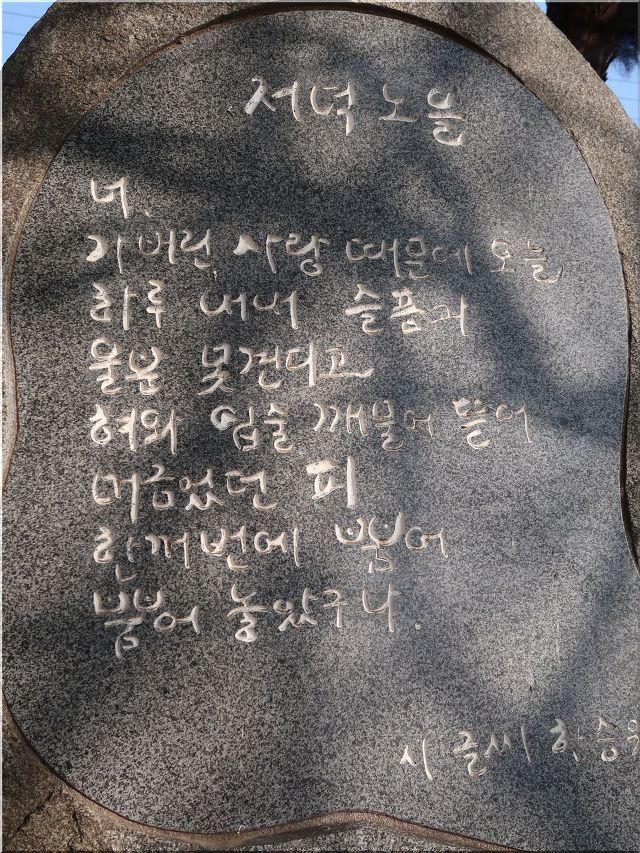 저녁 노을
너,
가버린 사랑 때문에 오늘
하루 내내 슬픔과
울분 못견디고
혀와 입술 깨물어 뜯어
머금었던 피
한꺼번에 뿜어
뿜어 놓았구나.
시 글씨 한승원